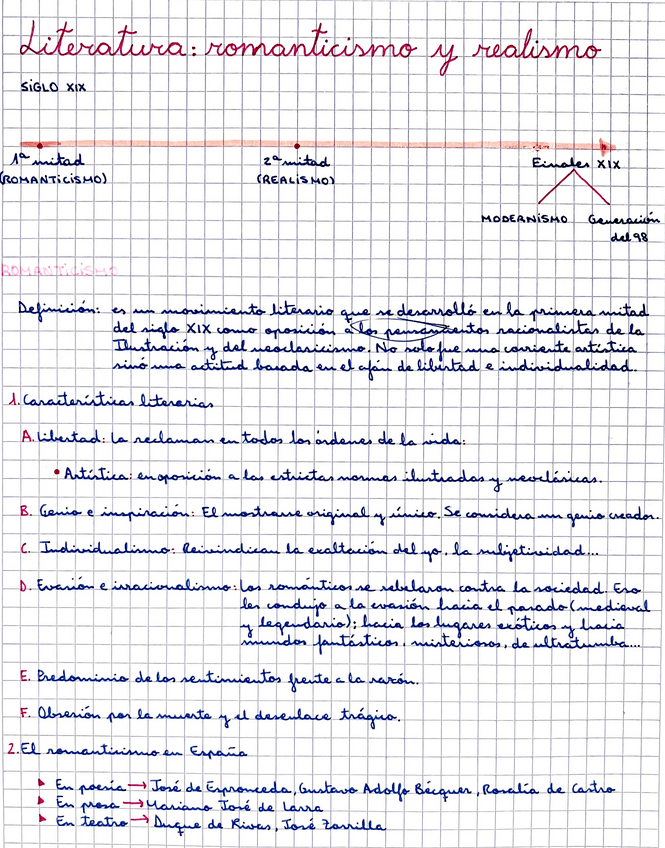 Literatura: romanticismo y realismo
SIGLO XIX
1ª mitad 2ª mitad Finales XIX
(ROMANTICISMO) (REALISMO)
MODERNISMO Generación
del 98
ROMANTICISMO
Definición: es un movimiento literario que se desarrolló en la primera mitad
del siglo XIX como oposición a los pensamientos racionalistas de la
Ilustración y del neoclasicismo. No solo fue una corriente artística
sinó una actitud basada en el afán de libertad e individualidad.
1. Características literarias
A. Libertad: La reclaman en todos los órdenes de la vida:
• Artística: en oposición a las estrictas normas ilustradas y neoclásicas.
B. Genio e inspiración: El mostrarse original y único. Se considera un genio creador.
C. Individualismo: Reivindican la exaltación del yo, la subjetividad...
D. Evasión e irracionalismo: Los románticos se rebelaron contra la sociedad. Eso
les condujo a la evasión hacia el pasado (medieval
y legendario); hacia los lugares exóticos y hacia
mundos fantásticos, misteriosos, de ultratumba...
E. Predominio de los sentimientos frente a la razón.
F. Obsesión por la muerte y el desenlace trágico.
2. El romanticismo en España
▸ En poesía → José de Espronceda, Gustavo Adolfo Bécquer, Rosalía de Castro
▸ En prosa → Mariano José de Larra
▸ En teatro → Duque de Rivas, José Zorrilla